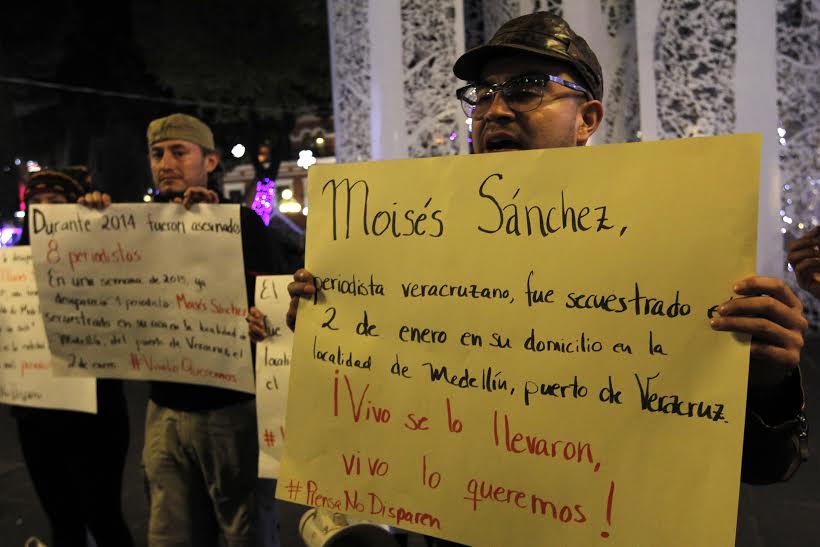 Durante 2014 fueron asesinados
8 periodistas
En una semana de 2015, ya
desapareció 1 periodista Moisés Sánchez
secuestrado en su casa en la localidad
Medellín, del puerto de Veracruz el
2 de enero #VivoLoQueremos
El
el
Moisés Sánchez,
periodista veracruzano, fue secuestrado e
2 de enero en su domicilio en la
localidad de Medellín, puerto de Veracruz.
¡Vivo se lo llevaron,
vivo lo queremos!
#PrensaNoDisparen